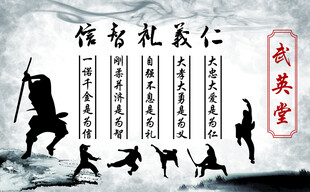 武英堂
信智礼義仁
大忠大爱是为仁
大孝大勇是为义
自强不息是为礼
刚柔并济是为智
一诺千金是为信